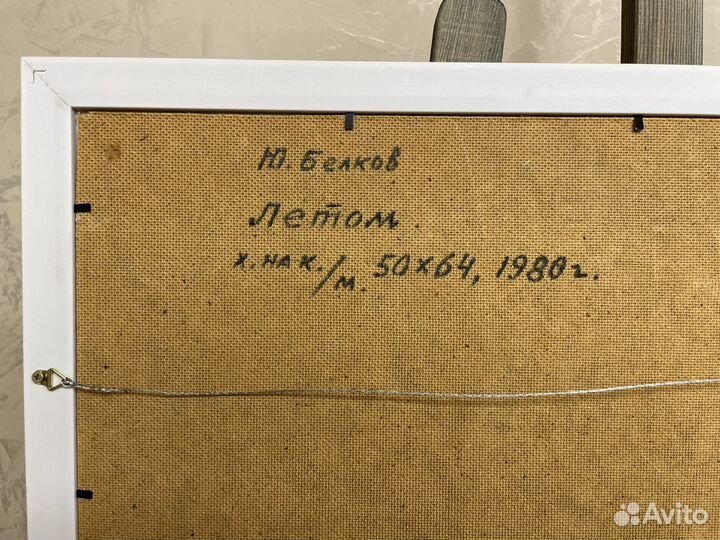 Ю. Белков
Летом
х. на к./м. 50х64, 1980г.
Avito